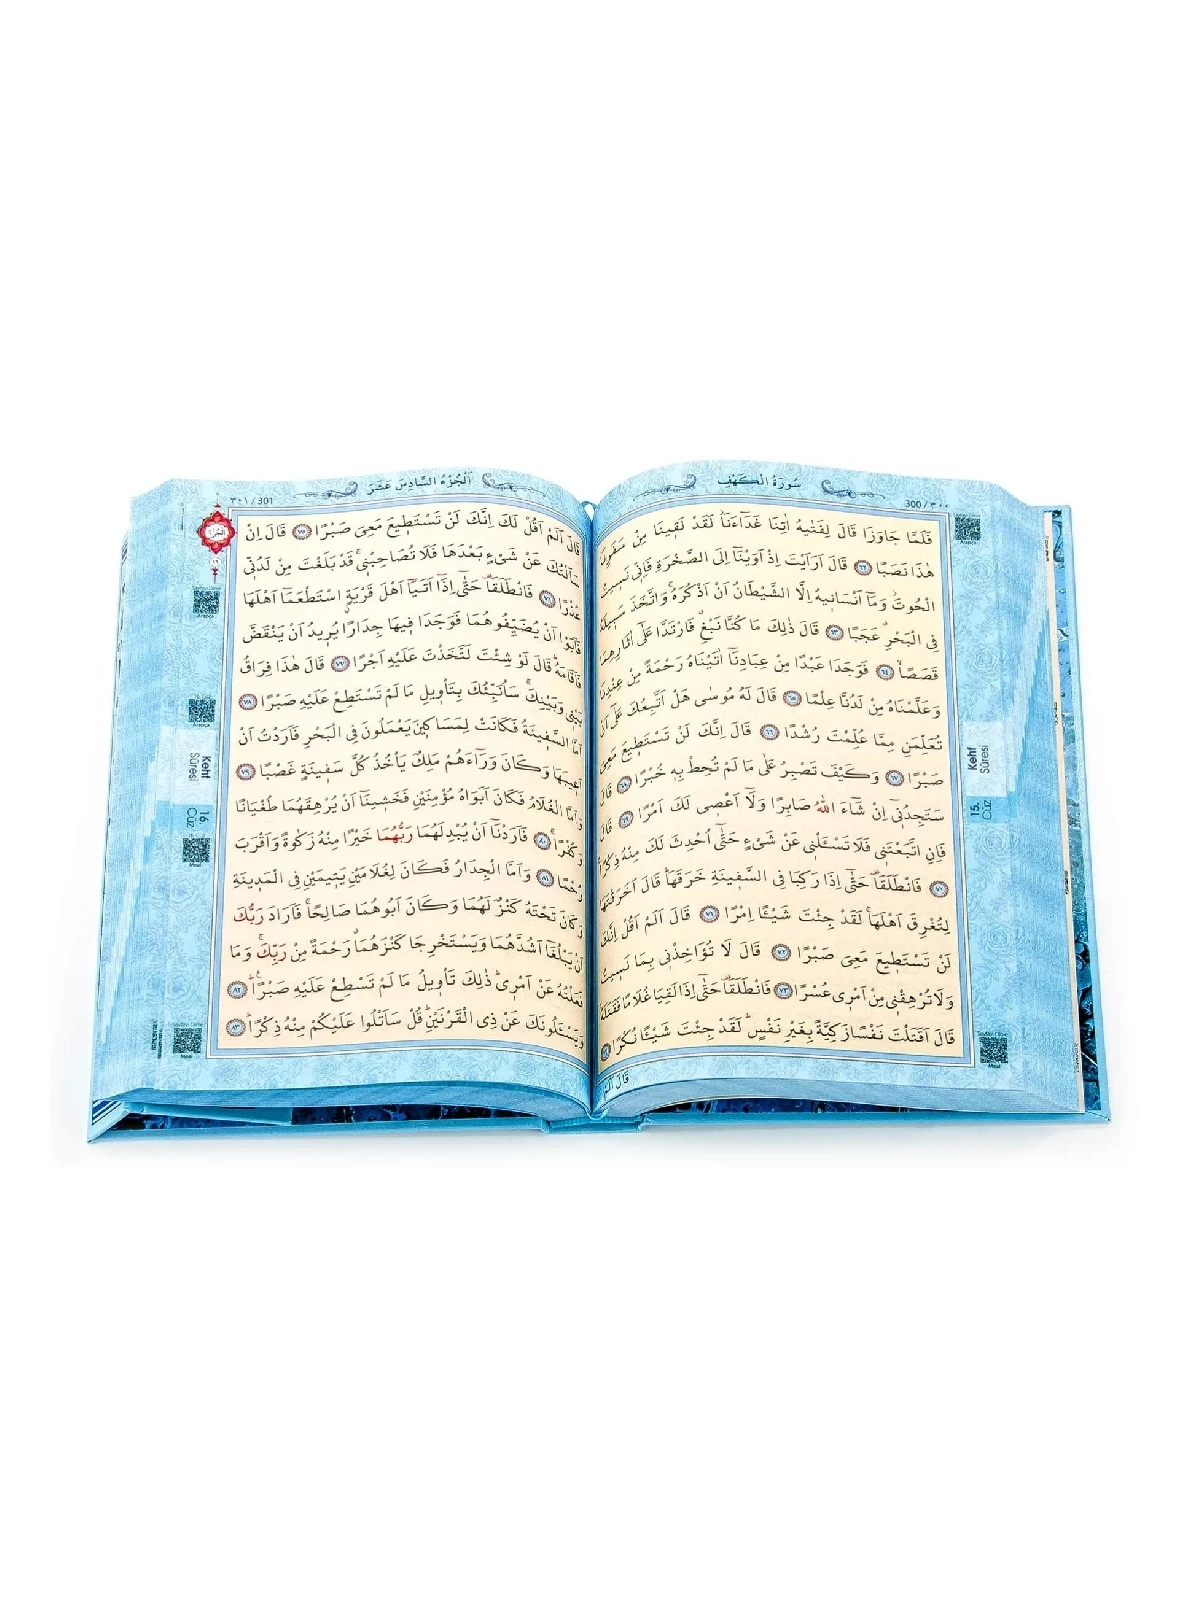 سُورَةُ الْكَهْفِ
300 / ٣٠٠
فَلَمَّا جَاوَزَا قَالَ لِفَتٰيهُ اٰتِنَا غَدَٓاءَنَاۘ لَقَدْ لَق۪ينَا مِنْ سَفَرِنَا
هٰذَا نَصَبًا ﴿٦٢﴾ قَالَ اَرَاَيْتَ اِذْ اَوَيْنَٓا اِلَى الصَّخْرَةِ فَاِنّ۪ي نَس۪يتُ
الْحُوتَۘ وَمَٓا اَنْسَان۪يهُ اِلَّا الشَّيْطَانُ اَنْ اَذْكُرَهُۚ وَاتَّخَذَ سَب۪يلَهُ
فِي الْبَحْرِۗ عَجَبًا ﴿٦٣﴾ قَالَ ذٰلِكَ مَا كُنَّا نَبْغِۗ فَارْتَدَّا عَلٰٓى اٰثَارِهِمَا
قَصَصًاۙ ﴿٦٤﴾ فَوَجَدَا عَبْدًا مِنْ عِبَادِنَٓا اٰتَيْنَاهُ رَحْمَةً مِنْ عِنْدِنَا
وَعَلَّمْنَاهُ مِنْ لَدُنَّا عِلْمًا ﴿٦٥﴾ قَالَ لَهُ مُوسٰى هَلْ اَتَّبِعُكَ عَلٰٓى اَنْ
تُعَلِّمَنِ مِمَّا عُلِّمْتَ رُشْدًا ﴿٦٦﴾ قَالَ اِنَّكَ لَنْ تَسْتَط۪يعَ مَعِيَ
صَبْرًا ﴿٦٧﴾ وَكَيْفَ تَصْبِرُ عَلٰى مَا لَمْ تُحِطْ بِه۪ خُبْرًا ﴿٦٨﴾ قَالَ
سَتَجِدُن۪ٓي اِنْ شَٓاءَ اللّٰهُ صَابِرًا وَلَٓا اَعْص۪ي لَكَ اَمْرًا ﴿٦٩﴾ قَالَ
فَاِنِ اتَّبَعْتَن۪ي فَلَا تَسْـَٔلْن۪ي عَنْ شَيْءٍ حَتّٰٓى اُحْدِثَ لَكَ مِنْهُ ذِكْرًا
﴿٧٠﴾ فَانْطَلَقَا۠ حَتّٰٓى اِذَا رَكِبَا فِي السَّف۪ينَةِ خَرَقَهَاۜ قَالَ اَخَرَقْتَهَا
لِتُغْرِقَ اَهْلَهَاۚ لَقَدْ جِئْتَ شَيْـًٔا اِمْرًا ﴿٧١﴾ قَالَ اَلَمْ اَقُلْ اِنَّكَ
لَنْ تَسْتَط۪يعَ مَعِيَ صَبْرًا ﴿٧٢﴾ قَالَ لَا تُؤَاخِذْن۪ي بِمَا نَس۪يتُ
وَلَا تُرْهِقْن۪ي مِنْ اَمْر۪ي عُسْرًا ﴿٧٣﴾ فَانْطَلَقَا۠ حَتّٰٓى اِذَا لَقِيَا غُلَامًا فَقَتَلَهُۙ
قَالَ اَقَتَلْتَ نَفْسًا زَكِيَّةً بِغَيْرِ نَفْسٍۜ لَقَدْ جِئْتَ شَيْـًٔا نُكْرًا ﴿٧٤﴾
قَالَ اَلَمْ
Kehf
Sûresi
15.
Cüz
Meal
اَلْجُزْءُ السَّادِسَ عَشَرَ
٣٠١ / 301
قَالَ اَلَمْ اَقُلْ لَكَ اِنَّكَ لَنْ تَسْتَط۪يعَ مَعِيَ صَبْرًا ﴿٧٥﴾ قَالَ اِنْ
سَاَلْتُكَ عَنْ شَيْءٍ بَعْدَهَا فَلَا تُصَاحِبْن۪يۚ قَدْ بَلَغْتَ مِنْ لَدُنّ۪ي
عُذْرًا ﴿٧٦﴾ فَانْطَلَقَا۠ حَتّٰٓى اِذَٓا اَتَيَٓا اَهْلَ قَرْيَةٍۨ اسْتَطْعَمَٓا اَهْلَهَا
فَاَبَوْا اَنْ يُضَيِّفُوهُمَا فَوَجَدَا ف۪يهَا جِدَارًا يُر۪يدُ اَنْ يَنْقَضَّ
فَاَقَامَهُۜ قَالَ لَوْ شِئْتَ لَتَّخَذْتَ عَلَيْهِ اَجْرًا ﴿٧٧﴾ قَالَ هٰذَا فِرَاقُ
بَيْن۪ي وَبَيْنِكَۚ سَاُنَبِّئُكَ بِتَأْو۪يلِ مَا لَمْ تَسْتَطِعْ عَلَيْهِ صَبْرًا ﴿٧٨﴾
اَمَّا السَّف۪ينَةُ فَكَانَتْ لِمَسَاك۪ينَ يَعْمَلُونَ فِي الْبَحْرِ فَاَرَدْتُ اَنْ
اَع۪يبَهَا وَكَانَ وَرَٓاءَهُمْ مَلِكٌ يَأْخُذُ كُلَّ سَف۪ينَةٍ غَصْبًا ﴿٧٩﴾
وَاَمَّا الْغُلَامُ فَكَانَ اَبَوَاهُ مُؤْمِنَيْنِ فَخَش۪ينَٓا اَنْ يُرْهِقَهُمَا طُغْيَانًا
وَكُفْرًاۚ ﴿٨٠﴾ فَاَرَدْنَٓا اَنْ يُبْدِلَهُمَا رَبُّهُمَا خَيْرًا مِنْهُ زَكٰوةً وَاَقْرَبَ
رُحْمًا ﴿٨١﴾ وَاَمَّا الْجِدَارُ فَكَانَ لِغُلَامَيْنِ يَت۪يمَيْنِ فِي الْمَد۪ينَةِ
وَكَانَ تَحْتَهُ كَنْزٌ لَهُمَا وَكَانَ اَبُوهُمَا صَالِحًاۚ فَاَرَادَ رَبُّكَ
اَنْ يَبْلُغَٓا اَشُدَّهُمَا وَيَسْتَخْرِجَا كَنْزَهُمَاۗ رَحْمَةً مِنْ رَبِّكَۚ وَمَا
فَعَلْتُهُ عَنْ اَمْر۪يۜ ذٰلِكَ تَأْو۪يلُ مَا لَمْ تَسْطِعْ عَلَيْهِ صَبْرًاۜ۟ ﴿٨٢﴾
وَيَسْـَٔلُونَكَ عَنْ ذِي الْقَرْنَيْنِۜ قُلْ سَاَتْلُوا عَلَيْكُمْ مِنْهُ ذِكْرًاۜ ﴿٨٣﴾
Kehf
Sûresi
16.
Cüz
Meal